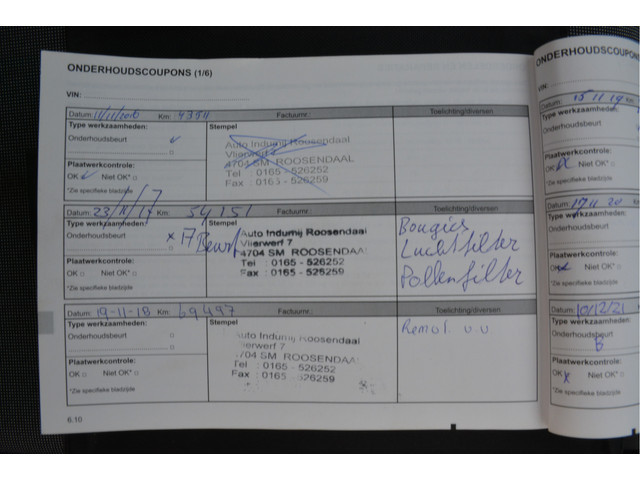 ONDERHOUDSCOUPONS (1/6)
VIN:
Datum: Km: Factuurnr.: Toelichting/diversen
Type werkzaamheden: Stempel
Onderhoudsbeurt
Auto Indumij Roosendaal
Vlierwerf 7
4704 SM ROOSENDAAL
Tel : 0165 - 526252
Fax : 0165 - 526259
Plaatwerkcontrole:
OK Niet OK*
*Zie specifieke bladzijde
Datum: 23/11/17 Km: 54151 Factuurnr.: Toelichting/diversen
Type werkzaamheden: Stempel
Onderhoudsbeurt x A Beurt
Auto Indumij Roosendaal
Vlierwerf 7
4704 SM ROOSENDAAL
Tel : 0165 - 526252
Fax : 0165 - 526259
Bougies
Luchtfilter
Pollenfilter
Plaatwerkcontrole:
OK Niet OK*
*Zie specifieke bladzijde
Datum: 19-11-18 Km: 69497 Factuurnr.: Toelichting/diversen
Type werkzaamheden: Stempel
Onderhoudsbeurt
uto Indumij Roosendaal
lierwerf 7
704 SM ROOSENDAAL
Tel : 0165 - 526252
Fax : 0165 - 526259
Remol. v.v
Plaatwerkcontrole:
OK Niet OK*
*Zie specifieke bladzijde
6.10
ONDERHOUDSCOUPO
VIN:
Datum: 15 11 19
Type werkzaamheden:
Onderhoudsbeurt
Plaatwerkcontrole:
OK Niet OK*
*Zie specifieke bladzijde
Datum: 17 11 20
Type werkzaamheden:
Onderhoudsbeurt
Plaatwerkcontrole:
OK Niet OK*
*Zie specifieke bladzijde
Datum: 10/12/21
Type werkzaamheden:
Onderhoudsbeurt
B
Plaatwerkcontrole:
OK x Niet OK*
*Zie specifieke bladzijde